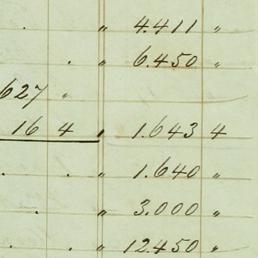 . „ 4.411 „
. „ 6.450 „
627 „
16 4 „ 1.643 4
. . „ 1.640 „
. „ 3.000 „
. . „ 12.450 „